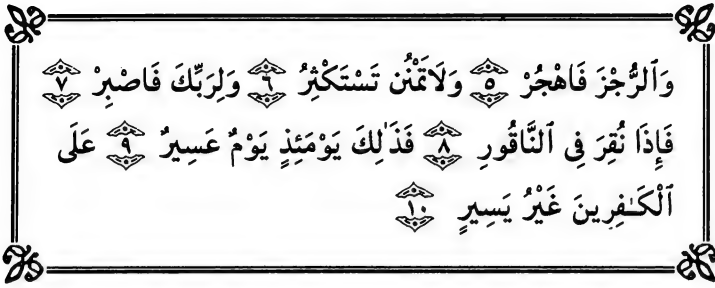 وَٱلرُّجْزَ فَاهْجُرْ ٥ وَلَا تَمْنُن تَسْتَكْثِرُ ٦ وَلِرَبِّكَ فَاصْبِرْ ٧
فَإِذَا نُقِرَ فِى ٱلنَّاقُورِ ٨ فَذَٰلِكَ يَوْمَئِذٍ يَوْمٌ عَسِيرٌ ٩ عَلَى
ٱلْكَـٰفِرِينَ غَيْرُ يَسِيرٍ ١٠